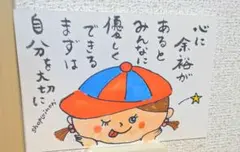 心に
余裕が
あると
みんなに
優しく
できる
まずは
自分を大切に